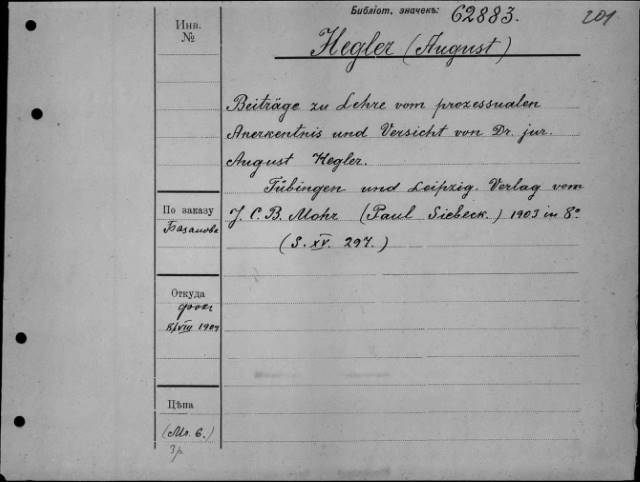 Библіот. значекъ: 62883.
201
Инв.
№
Hegler (August)
Beiträge zu Lehre vom prozessualen
Anerkentnis und Versicht von Dr. jur.
August Hegler.
Tübingen und Leipzig. Verlag vom
J. C. B. Mohr (Paul Siebeck.) 1903 in 8º
(S. XV. 297.)
По заказу
Базанова
Откуда
8/VIII 1904
Цѣна
(Mr. 6.)
3р